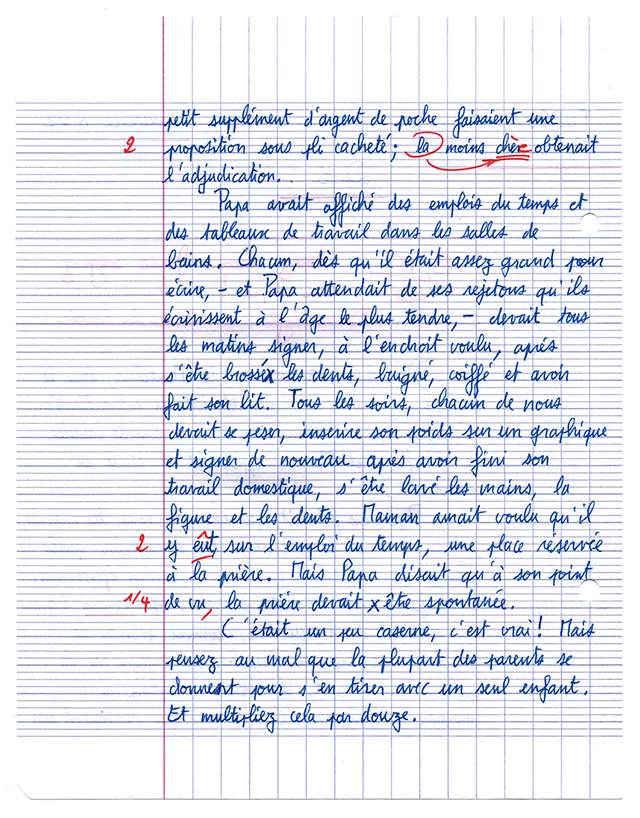 petit supplément d'argent de poche faisaient une
2 proposition sous pli cacheté; la moins chère obtenait
l'adjudication.
Papa avait affiché des emplois du temps et
des tableaux de travail dans les salles de
bains. Chacun, dès qu'il était assez grand pour
écrire, - et Papa attendait de ses rejetons qu'ils
écrivissent à l'âge le plus tendre, - devait tous
les matins signer, à l'endroit voulu, après
s'être brossé les dents, baigné, coiffé et avoir
fait son lit. Tous les soirs, chacun de nous
devait se peser, inscrire son poids sur un graphique
et signer de nouveau après avoir fini son
travail domestique, s'être lavé les mains, la
figure et les dents. Maman aurait voulu qu'il
2 y eût, sur l'emploi du temps, une place réservée
à la prière. Mais Papa disait qu'à son point
1/4 de vu, la prière devait être spontanée.
C'était un peu caserne, c'est vrai! Mais
pensez au mal que la plupart des parents se
donnent pour s'en tirer avec un seul enfant.
Et multipliez cela par douze.